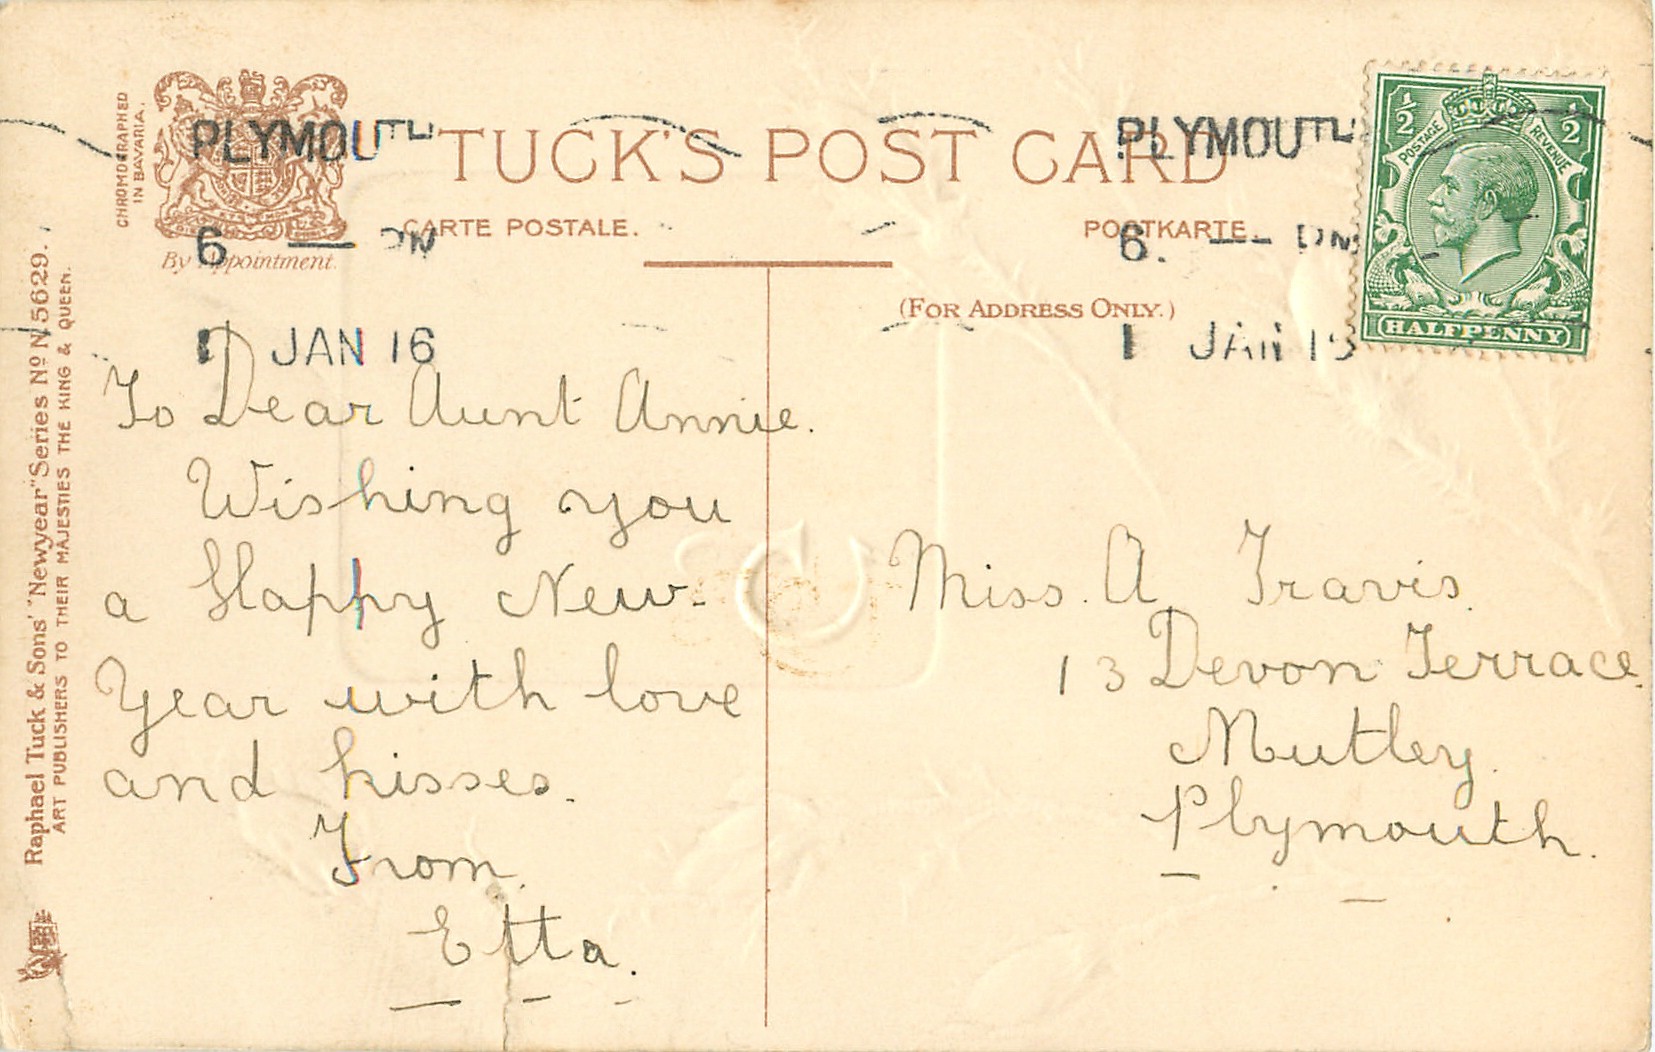 CHROMOGRAPHED
IN BAVARIA.
By Appointment.
TUCK'S POST CARD
CARTE POSTALE.
POSTKARTE.
(FOR ADDRESS ONLY.)
PLYMOUTH
6 — PM
1 JAN 16
PLYMOUTH
6. — PM
1 JAN 16
½
½
POSTAGE
REVENUE
HALFPENNY
Raphael Tuck & Sons' "Newyear" Series Nº N. 5629.
ART PUBLISHERS TO THEIR MAJESTIES THE KING & QUEEN.
To Dear Aunt Annie.
Wishing you
a Happy New-
Year with love
and kisses.
From
Etta.
Miss. A Travis.
13 Devon Terrace.
Mutley.
Plymouth.